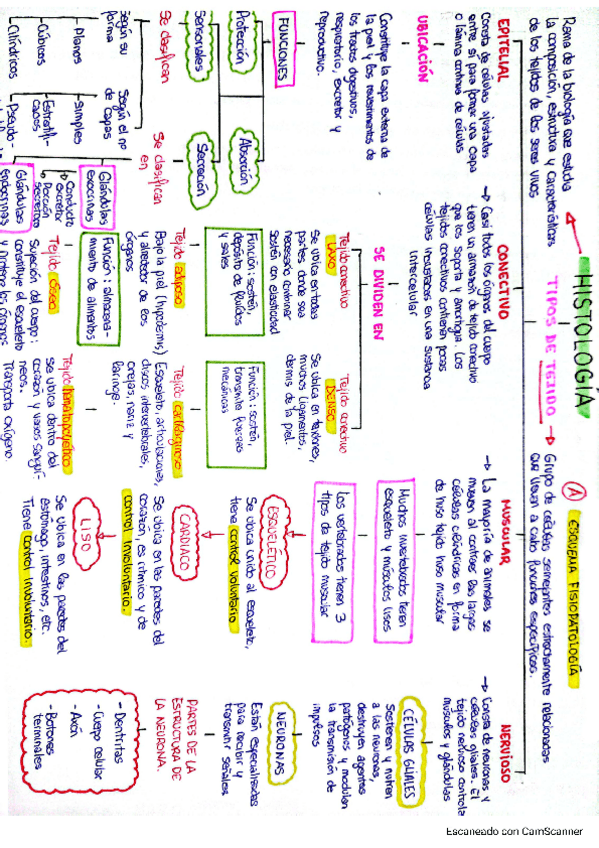 HISTOLOGÍA
Rama de la biología que estudia
la composición, estructura y características
de los tejidos de los seres vivos
TIPOS DE TEJIDO
Grupo de células semejantes estrechamente relacionadas
que llevan a cabo funciones específicas.
A ESQUEMA FISIOPATOLOGÍA
EPITELIAL
Consta de células ajustadas
entre sí para formar una capa
o lámina continua de células
UBICACIÓN
Constituye la capa externa de
la piel y los revestimientos de
los tractos digestivos,
respiratorio, excretor y
reproductivo.
FUNCIONES
Protección
Absorción
Sensoriales
Secreción
Se clasifican
Según su
forma
- Planos
- Cúbicos
- Cilíndricos
Según el nº
de capas
- Simples
- Estratifi-
cados
- Pseudo
Se clasifican
en
Glándulas
exocrinas
Conducto
excretor
Porción
secretora
Glándulas
endocrinas
CONECTIVO
Casi todos los órganos del cuerpo
tienen un armazón de tejido conectivo
que los soporta y amortigua. Los
tejidos conectivos contienen pocas
células incrustadas en una sustancia
intercelular
SE DIVIDEN EN
Tejido conectivo
LAXO
Se ubica en todas
partes donde sea
necesario combinar
sostén con elasticidad
Función: sostén,
depósito de fluidos
y sales
Tejido conectivo
DENSO
Se ubica en tendones,
muchos ligamentos,
dermis de la piel.
Función: sostén,
transmite fuerzas
mecánicas
Tejido adiposo
Bajo la piel (hipodermis)
y alrededor de los
órganos
Función: almacena-
miento de alimentos
Tejido cartilaginoso
Esqueleto, articulaciones,
discos intervertebrales,
orejas, nariz y
laringe.
Tejido óseo
Sujeción del cuerpo:
constituye el esqueleto
y protege los órganos
Tejido hematopoyético
se ubica dentro del
corazón y vasos sanguí-
neos.
Transporta oxígeno.
MUSCULAR
La mayoría de animales, se
mueven al contraer las largas
células cilíndricas en forma
de huso tejido huso muscular
Muchos invertebrados tienen
esqueleto y músculos lisos
Los vertebrados tienen 3
tipos de tejido muscular
ESQUELÉTICO
Se ubica unido al esqueleto,
tiene control voluntario
CARDIACO
Se ubica en las paredes del
corazón, es rítmico y de
control involuntario.
LISO
Se ubica en las paredes del
estómago, intestinos, etc.
Tiene control involuntario.
NERVIOSO
Consta de neuronas y
células gliales. El
tejido nervioso controla
músculos y glándulas
CÉLULAS GLIALES
Sostienen y nutren
a las neuronas,
destruyen agentes
patógenos y modulan
la transmisión de
impulsos
NEURONAS
Están especializadas
para recibir y
transmitir señales
PARTES DE LA
ESTRUCTURA DE
LA NEURONA.
- Dentritas
- Cuerpo celular
- Axón
- Botones
terminales
Escaneado con CamScanner